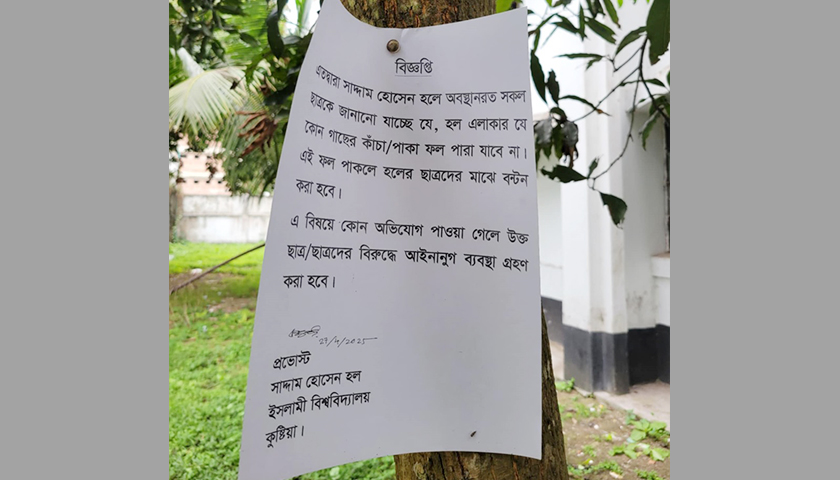 বিজ্ঞপ্তি
এতদ্বারা সাদ্দাম হোসেন হলে অবস্থানরত সকল
ছাত্রকে জানানো যাচ্ছে যে, হল এলাকার যে
কোন গাছের কাঁচা/পাকা ফল পারা যাবে না।
এই ফল পাকলে হলের ছাত্রদের মাঝে বন্টন
করা হবে।
এ বিষয়ে কোন অভিযোগ পাওয়া গেলে উক্ত
ছাত্র/ছাত্রদের বিরুদ্ধে আইনানুগ ব্যবস্থা গ্রহণ
করা হবে।
প্রভোস্ট
সাদ্দাম হোসেন হল
ইসলামী বিশ্ববিদ্যালয়
কুষ্টিয়া।